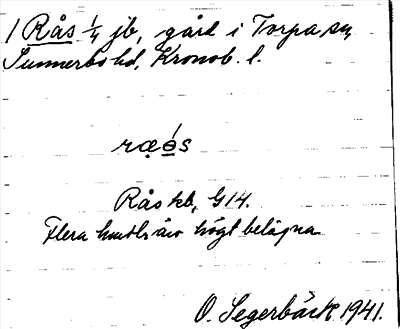 1 Rås 1/4 jb, gård i Torpa sn,
Sunnerbo hd, Kronob. l.
Rås kb, G14.
Flera högt belägna
O. Segerbäck 1941.